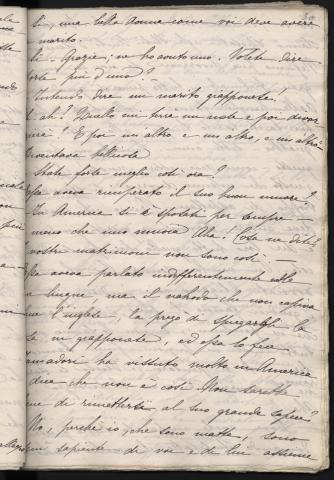 Si, una bella donna come voi deve avere
marito.
Si. Grazie; ne ho avuto uno. Volete dire
forse più d'uno?
Intendo dire un marito giapponese!
ah! Quello mi terrà un mese e poi divor
E poi un altro e un altro, e un altro
diventava
State forse meglio così ora?
aveva ricuperato il suo buon umore?
In America si è sposati per sempre
meno che uno muoia Aha! Cosa ne dite?
vostri matrimoni non sono così. —
aveva parlato indifferentemente nella
lingua, ma il nakodo che non capiva
l'inglese, la pregò di spiegargli la
in giapponese, ed essa lo fece
Yamadori ha vissuto molto in America
dice che non è così Non sarebbe
di rimettersi al suo grande sapere?
No, perchè io, che sono matta, sono
sapiente di voi e di lui assieme